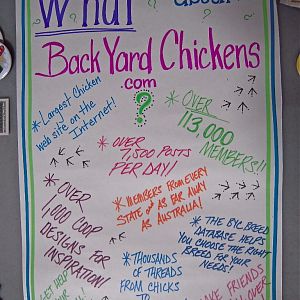 What
about
BackYard Chickens
.com
?
* Largest Chicken
web site on the
Internet!
* OVER
113,000
MEMBERS!!
* OVER
7,500 POSTS
PER DAY!
* OVER
1,000 COOP
DESIGNS FOR
INSPIRATION!
* MEMBERS FROM EVERY
STATE & AS FAR AWAY
AS AUSTRALIA!
* THE BYC BREED
DATABASE HELPS
YOU CHOOSE THE RIGHT
BREED FOR YOUR
NEEDS!
* THOUSANDS
OF THREADS
FROM CHICKS
TO
GET HELP
FRIENDS
OVER